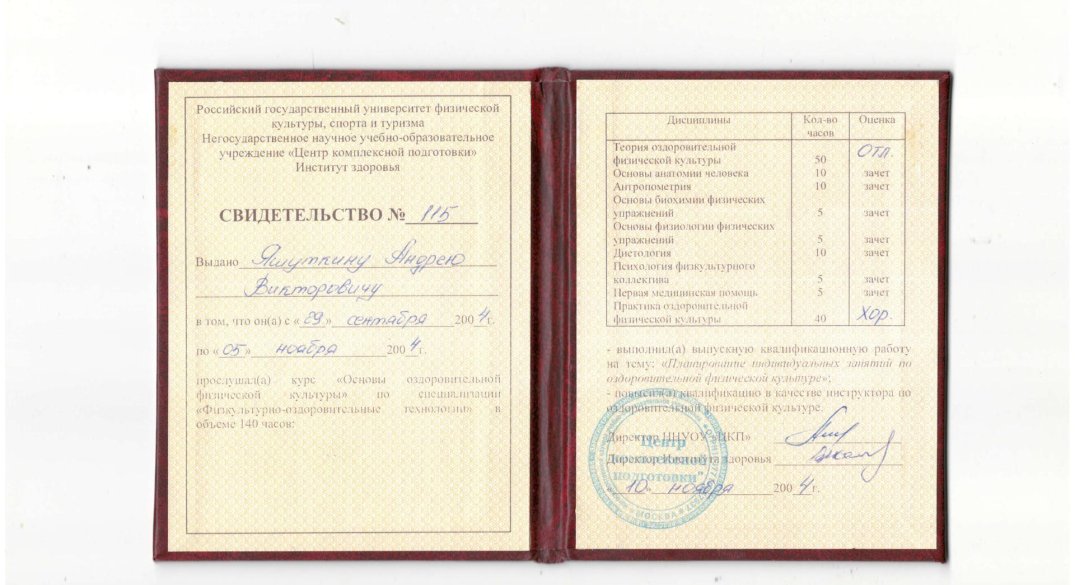 Российский государственный университет физической
культуры, спорта и туризма
Негосударственное научное учебно-образовательное
учреждение «Центр комплексной подготовки»
Институт здоровья
СВИДЕТЕЛЬСТВО № 115
Выдано Яшуткину Андрею
Викторовичу
в том, что он(а) с « 29 » сентября 2004 г.
по « 05 » ноября 2004 г.
прослушал(а) курс «Основы оздоровительной
физической культуры» по специализации
«Физкультурно-оздоровительные технологии» в
объеме 140 часов:
Дисциплины Кол-во часов Оценка
Теория оздоровительной
физической культуры 50 отл.
Основы анатомии человека 10 зачет
Антропометрия 10 зачет
Основы биохимии физических
упражнений 5 зачет
Основы физиологии физических
упражнений 5 зачет
Диетология 10 зачет
Психология физкультурного
коллектива 5 зачет
Первая медицинская помощь 5 зачет
Практика оздоровительной
физической культуры 40 хор.
- выполнил(а) выпускную квалификационную работу
на тему: «Планирование индивидуальных занятий по
оздоровительной физической культуре»;
- повысил(а) квалификацию в качестве инструктора по
оздоровительной физической культуре.
Директор ННУОУ «ЦКП»
Директор Института здоровья
10 ноября 2004 г.
Центр
комплексной
подготовки"
МОСКВА